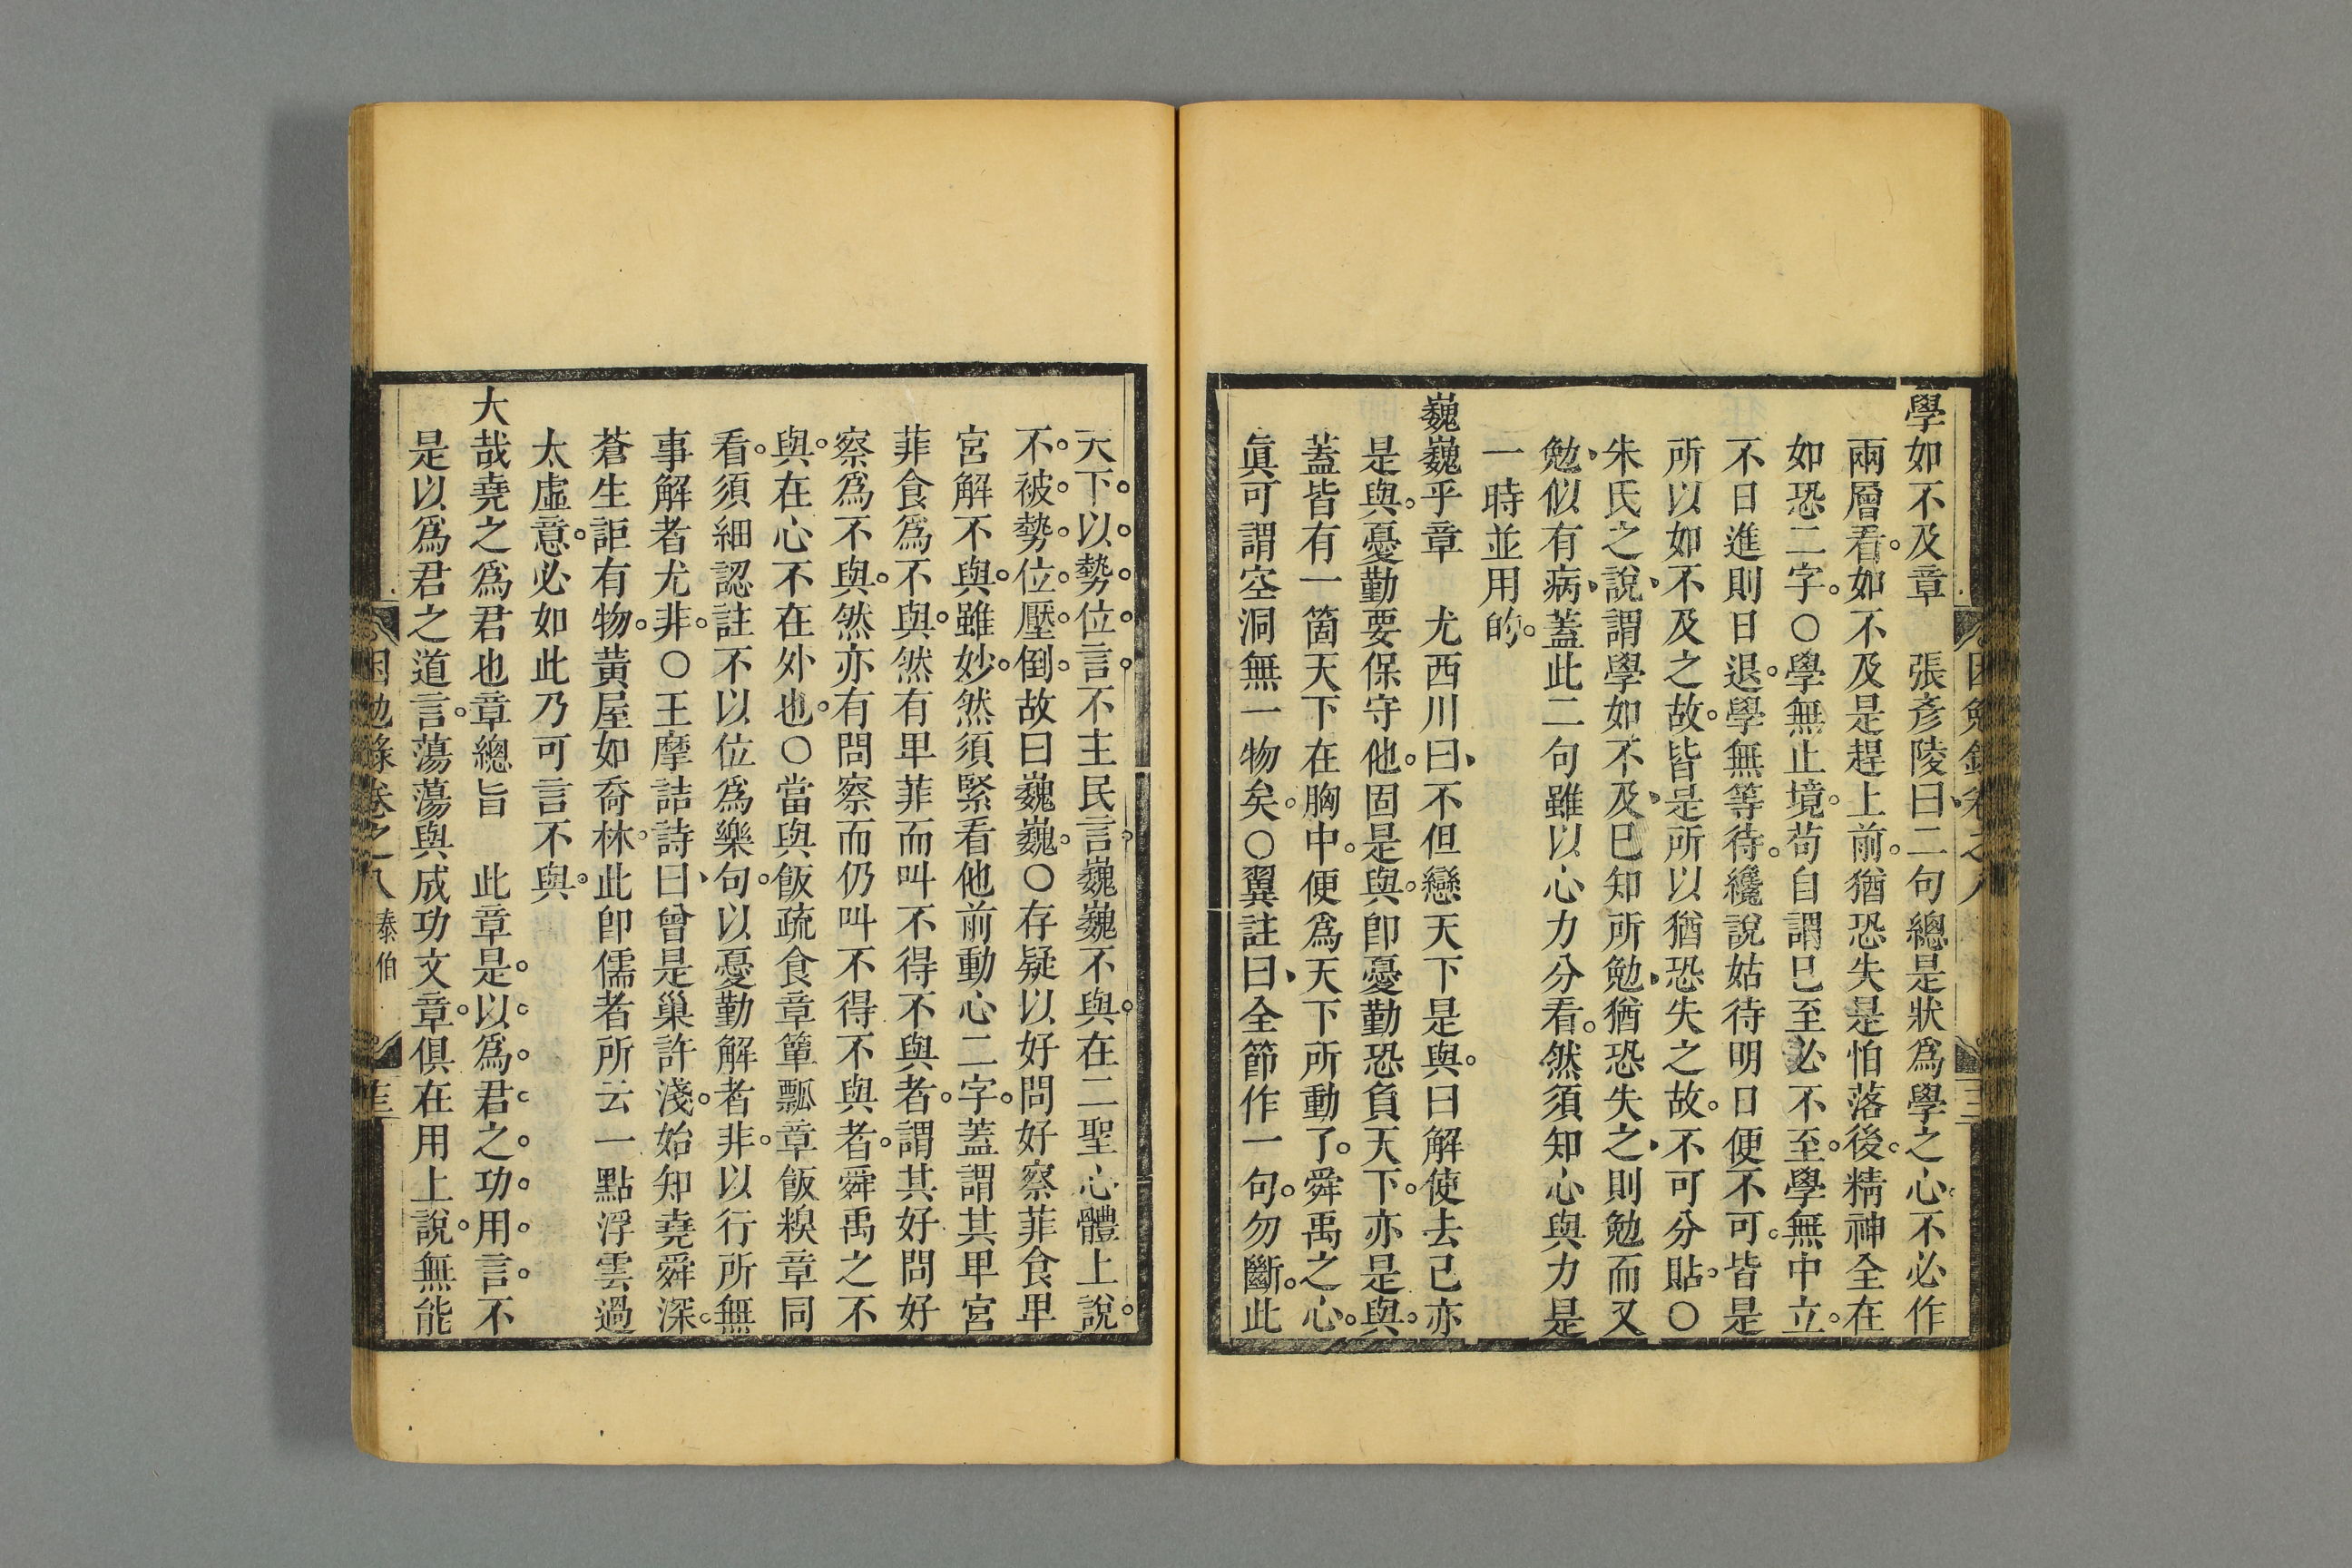 學如不及章　張彥陵曰二句總是狀爲學之心不必作
兩層看。如不及是趕上前。猶恐失是怕落後。精神全在
如恐二字。○學無止境。苟自謂已至必不至。學無中立。
不日進則日退。學無等待。纔說姑待明日便不可。皆是
所以如不及之故。皆是所以猶恐失之故。不可分貼。○
朱氏之說、謂學如不及、已知所勉、猶恐失之、則勉而又
勉、似有病、蓋此二句雖以心力分看。然須知心與力是
一時並用的。
巍巍乎章　尤西川曰、不但戀天下是與。曰解使去已亦
是與。憂勤要保守他。固是與。卽憂勤恐負天下。亦是與。
蓋皆有一箇天下在胸中。便爲天下所動了。舜禹之心。
眞可謂空洞無一物矣。○翼註曰、全節作一句。勿斷。此
天下。以。勢。位。言。不主民言。巍巍不與。在二聖心體上說。
不。被。勢。位。壓。倒。故曰巍巍。○存疑以好問好察菲食卑
宮解不與。雖妙。然須緊看他前動心二字。蓋謂其卑宮
菲食爲不與。然有卑菲而叫不得不與者。謂其好問好
察爲不與。然亦有問察而仍叫不得不與者。舜禹之不
與。在心不在外也。○當與飯疏食章簞瓢章飯糗章同
看。須細認註不以位爲樂句。以憂勤解者非。以行所無
事解者尤非。○王摩詰詩曰、曾是巢許淺。始知堯舜深。
蒼生詎有物。黃屋如喬林。此卽儒者所云一點浮雲過
太虛意。必如此乃可言不與。
大哉堯之爲君也章總旨　此章是。以。爲。君。之。功。用。言。不
是以爲君之道言。蕩蕩與成功文章。俱在用上說。無能
困勉錄卷之八 泰伯